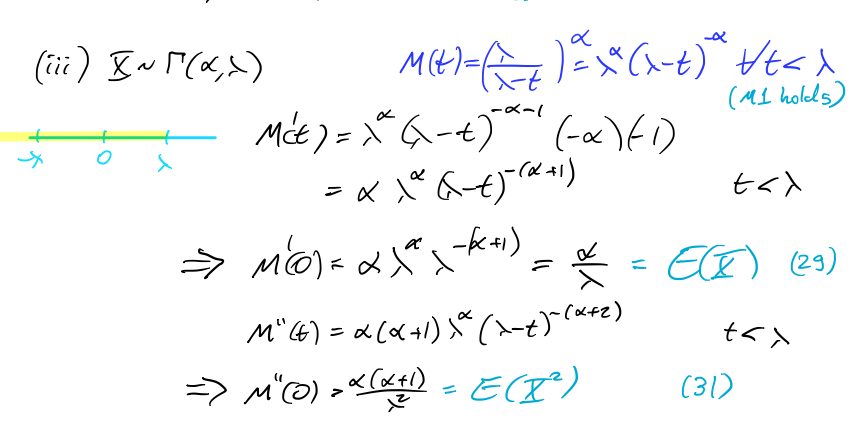 (iii) X ~ Γ(α,λ)    M(t)=(λ/(λ-t))^α = λ^α (λ-t)^-α ∀t< λ
(M1 holds)
M'(t) = λ^α (λ-t)^-α-1 (-α)(-1)
-λ 0 λ
= α λ^α (λ-t)^-(α+1)    t<λ
=> M'(0) = α λ^α λ^-(α+1) = α/λ = E(X) (29)
M''(t) = α(α+1) λ^α (λ-t)^-(α+2)    t<λ
=> M''(0) = α(α+1)/λ² = E(X²) (31)